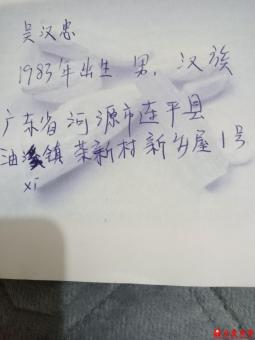 吴汉忠
1983年出生 男, 汉族
广东省河源市连平县
油溪镇 茶新村新乡屋1号
xi